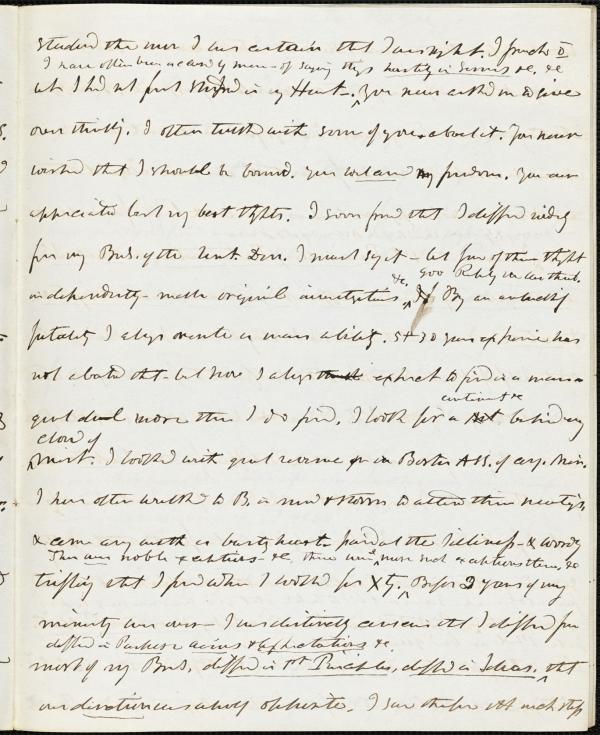 studied the more I was certain that I was right. I preached
I have often been accused by men of saying things hastily in Sermons &c. &c.
wh I had not first in my Heart. You never asked me to give
over thinking. I often talked with some of you about it. You never
wished that I should be bound. You welcomed my freedom. You ever
appreciated best my best thghts. I soon found that I differed widely
from my Brs. of the Unit. Den. I must say it - but few of them thght
&c. goo
independently - made original investigations By an unlucky
fatality I always overrate a mans ability. 5 + 30 years experience has
not abated that - but now I always expect to find in a man a
continent &c
great deal more than I do find. I look for a behind every
cloud of
mist. I looked with great reverence on the Boston Ass. of Cong. Min.
I have often walked to B. in mud & storm to attend their meetings
& came away with an heart pained at the & wordy
There are noble exceptions &c. there were more such exceptions then, &c
trifling that I found when I looked for Xty. Before 3 years of my
ministry were over - I was distinctly conscious that I differed from
differed in Purpose aims & expectations &c
most of my Brs. differed in 1st Principles, differed in Ideas. that
our direction was opposite. I saw therefore that each step